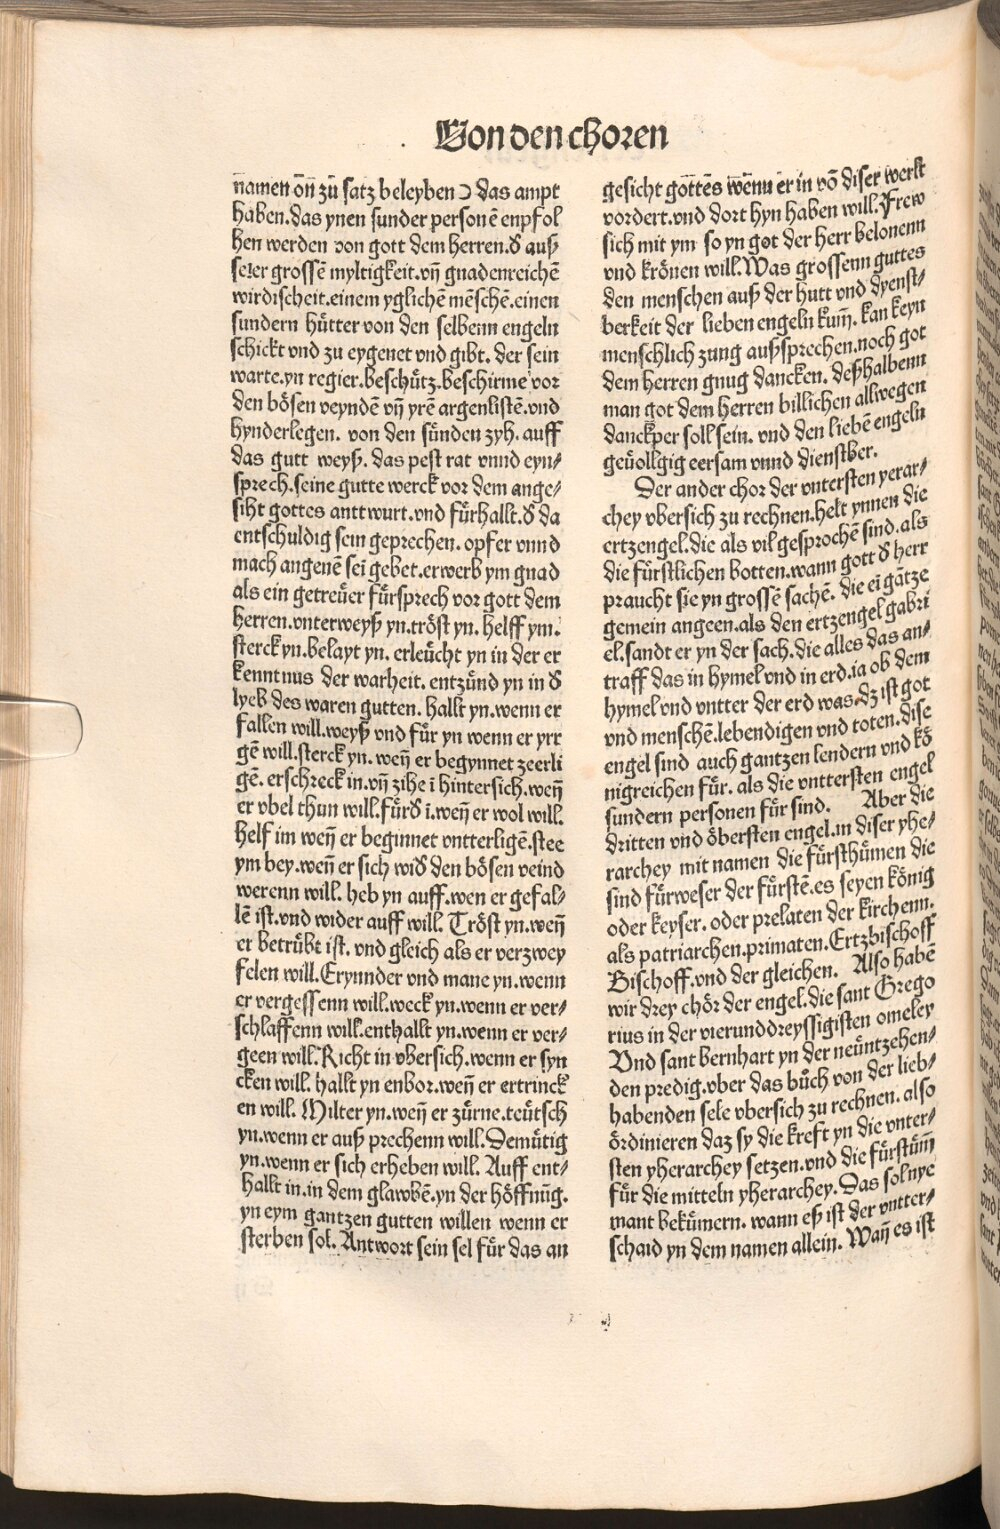 Von den choren
namen on̄ zu satz beleyben Ↄ das ampt
haben.das ynen sunder personē enpfol
hen werden von gott dem herren.δ auß
seīer grossē myltigkeit.vn̄ gnadenreichē
wirdischeit.einem yglichē mēschē.einen
sundern hütter von den selbenn engeln
schickt vnd zu eygenet vnd gibt. der sein
warte.yn regier.beschütz.beschirme vor
den bösen veyndē vn̄ yrē argenlistē.vnd
hynderlegen. von den sünden zyh. auff
das gutt weyß. das pest rat vnnd eyn⸗
sprech.seine gutte werck vor dem ange⸗
siht gottes anttwurt.vnd fürhallt.δ da
entschuldig sein geprechen. opfer vnnd
mach angenē sei gebet.erwerb ym gnad
als ein getreüer fürsprech vor gott dem
herren.vnterweyß yn.tröst yn. helff ym.
sterck yn.belayt yn. erleücht yn in der er
kenntnus der warheit. entzünd yn in δ
lyeb des waren gutten. hallt yn.wenn er
fallen will.weyß vnd für yn wenn er yrr
gē will.sterck yn. wen̄ er begynnet zeerli
gē. erschreck in.vn̄ zihe ī hintersich.wen̄
er vbel thun will.fürδ ī.wen̄ er wol will.
helf im wen̄ er beginnet vntterligē.stee
ym bey.wen̄ er sich widδ den bösen veind
werenn will. heb yn auff.wen er gefal⸗
lē ist.vnd wider auff will. Tröst yn.wen̄
er betrübt ist. vnd gleich als er verzwey
felen will.Erynnder vnd mane yn.wenn
er vergessenn will.weck yn.wenn er ver⸗
schlaffenn will.enthallt yn.wenn er ver⸗
geen will.Richt in vbersich.wenn er syn
cken will. hallt yn enbor.wen̄ er ertrinck
en will. Milter yn.wen̄ er zürne.teütsch
yn.wenn er auß prechenn will.Demütig
yn.wenn er sich erheben will. Auff ent⸗
hallt in.in dem glawbē.yn der höffnūg.
yn eym gantzen gutten willen wenn er
sterben sol. Antwort sein sel für das an
gesicht gottes wenn er in vō diser werlt
vordert.vnd dort hyn haben will.Frew
sich mit ym so yn got der herr belonenn
vnd krönen will.Was grossenn guttes
den menschen auß der hutt vnd dyenst⸗
berkeit der lieben engeln kum̄. kan keyn
menschlich zung außsprechen.noch got
dem herren gnug dancken. deßhalbenn
man got dem herren billichen allwegen
danckper soll sein. vnd den liebē engeln
geüollgig eersam vnnd dienstber.
Der ander chor der vntersten yerar⸗
chey vbersich zu rechnen.helt ynnen die
ertzengel.die als vil gesprochē sind.als
die fürstlichen botten.wann gott δ herr
praucht sie yn grossē sachē. die ei gātze
gemein angeen.als den ertzengel gabri
el.sandt er yn der sach.die alles das an⸗
traff das in hymel vnd in erd.ia ob dem
hymel vnd vntter der erd was.dz ist got
vnd menschē.lebendigen vnd toten.dise
engel sind auch gantzen lendern vnd kö
nigreichen für. als die vnttersten engel
sundern personen für sind. Aber die
dritten vnd öbersten engel.in diser yhe⸗
rarchey mit namen die fürsthümen die
sind fürweser der fürstē.es seyen könig
oder keyser. oder prelaten der kirchenn.
als patriarchen.primaten.Ertzbischoff
Bischoff.vnd der gleichen. Also habē
wir drey chör der engel.die sant Grego
rius in der vierunddreyssigisten omeley
Vnd sant bernhart yn der neüntzehen⸗
den predig.vber das büch von der lieb⸗
habenden sele vbersich zu rechnen. also
ördinieren daz sy die kreft yn die vnter⸗
sten yherarchey setzen.vnd die fürstüm̄
für die mitteln yherarchey.Das sol nye
mant bekümern. wann eß ist der vntter⸗
schaid yn dem namen allein. Wan̄ es ist